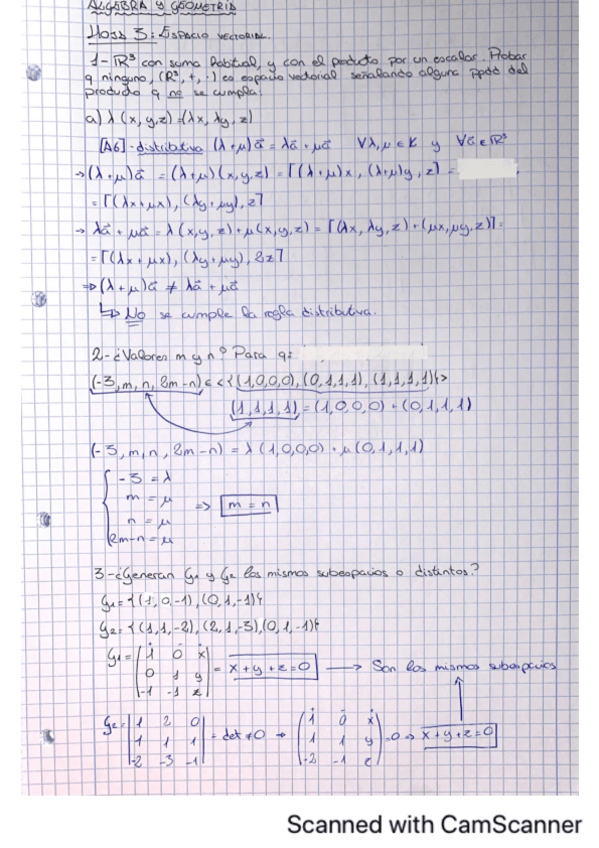 ALGEBRA Y GEOMETRÍA
HOJA 3: ESPACIO VECTORIAL.
1- ℝ³ con suma habitual, y con el producto por un escalar. Probar
q ninguno, (ℝ³, +, ·) es espacio vectorial señalando alguna ppdd del
producto q no se cumpla:
a) λ (x,y,z) = (λx, λy, z)
[A6] - distributiva (λ + μ)ā = λā + μā ∀λ, μ ∈ K y ∀ā ∈ ℝ³
→ (λ + μ)ā = (λ+μ)(x,y,z) = [(λ+μ)x, (λ+μ)y, z] =
= [(λx + μx), (λy + μy), z]
→ λā + μā = λ(x,y,z) + μ(x,y,z) = [(λx, λy, z) + (μx, μy, z)] =
= [(λx + μx), (λy + μy), 2z]
⇒ (λ + μ)ā ≠ λā + μā
↳ No se cumple la regla distributiva.
2- ¿Valores m y n? Para q:
(-3, m, n, 2m-n) ∈ <{(1,0,0,0), (0,1,1,1), (1,1,1,1)}>
(1,1,1,1) = (1,0,0,0) + (0,1,1,1)
(-3, m, n, 2m-n) = λ (1,0,0,0) + μ (0,1,1,1)
-3 = λ
m = μ ⇒ m = n
n = μ
2m-n = μ
3- ¿Generan G1 y G2 los mismos subespacios o distintos?
G1 = {(1, 0, -1), (0, 1, -1)}
G2 = {(1, 1, -2), (2, 1, -3), (0, 1, -1)}
G1 = | 1 0 x | = x + y + z = 0 → Son los mismos subespacios
0 1 y
-1 -1 z
G2 = | 1 2 0 | = det ≠ 0 → | 1 0 x | = 0 ⇒ x + y + z = 0
1 1 1 1 1 y
-2 -3 -1 -2 -1 z
Scanned with CamScanner